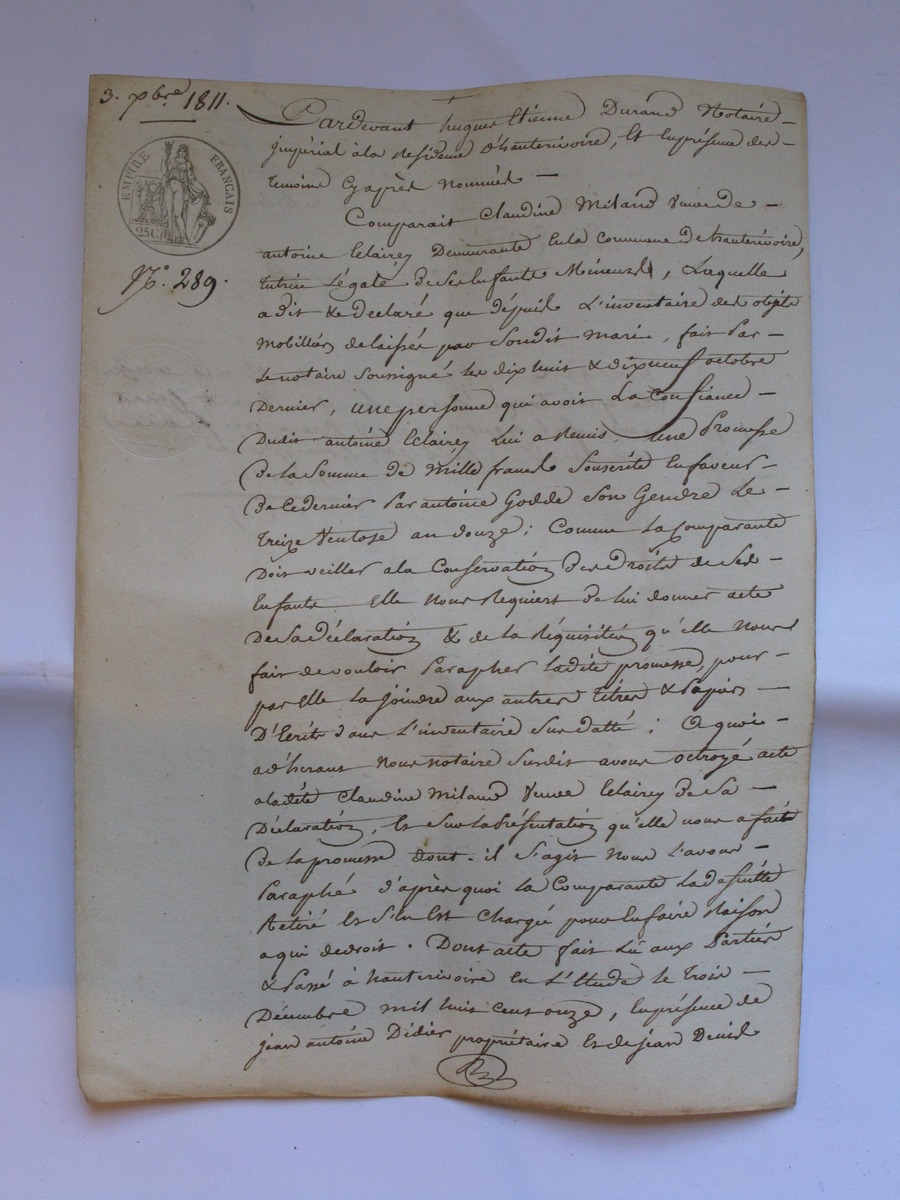 3. xbre 1811.
EMPIRE FRANÇAIS
25C.
N.° 289.
Pardevant hugues Etienne Durand Notaire
jmpérial à la Résidence d'hauterivoire, Et Enprésence des
temoins Cyaprès Nommés
Comparait Claudine Miland Veuve de
antoine Eclairey Demeurante En la Commune de hauterivoire,
tutrice Légale de ses Enfants Mineurs, Laquelle
a dit & declaré que dépuis L'inventaire des objets
Mobilliers delaissés par Sondit mari, fait Par
Le notaire soussigné les dix huit & dixneuf octobre
Dernier, une personne qui avoit La Confiance
Dudit antoine Eclairey Lui a Remis une Promesse
De la Somme de Mille francs Souscrite En faveur
De Ce dernier Par antoine Godde Son Gendre Le
treize Ventose an douze ; Comme La Comparante
Doit veiller a la Conservation des droits de Ses
Enfants Elle Nous Requiert de lui donner acte
De Sa déclaration & de La Réquisition qu'elle Nous
fait de vouloir Parapher ladite promesse, pour
par Elle La joindre aux autres titres & Papiers
D'Ecrits dans L'inventaire Sus datté ; a quoi
adhérant Nous Notaire Susdit avons octroyé acte
a ladite Claudine Miland Veuve Eclairey de Sa
Déclaration, Et Sur la Présentation qu'elle nous a faite
De la promesse dont il S'agit Nous L'avons
Paraphé d'après quoi La Comparante La de Suitte
Retiré Et S'en Est Chargé pour En faire Raison
a qui de droit. Dont acte fait Lû aux Parties
& Passé à hauterivoire En L'Etude le trois
Décembre mil huit cent onze, En présence de
jean antoine Didier propriétaire Et de jean Denis